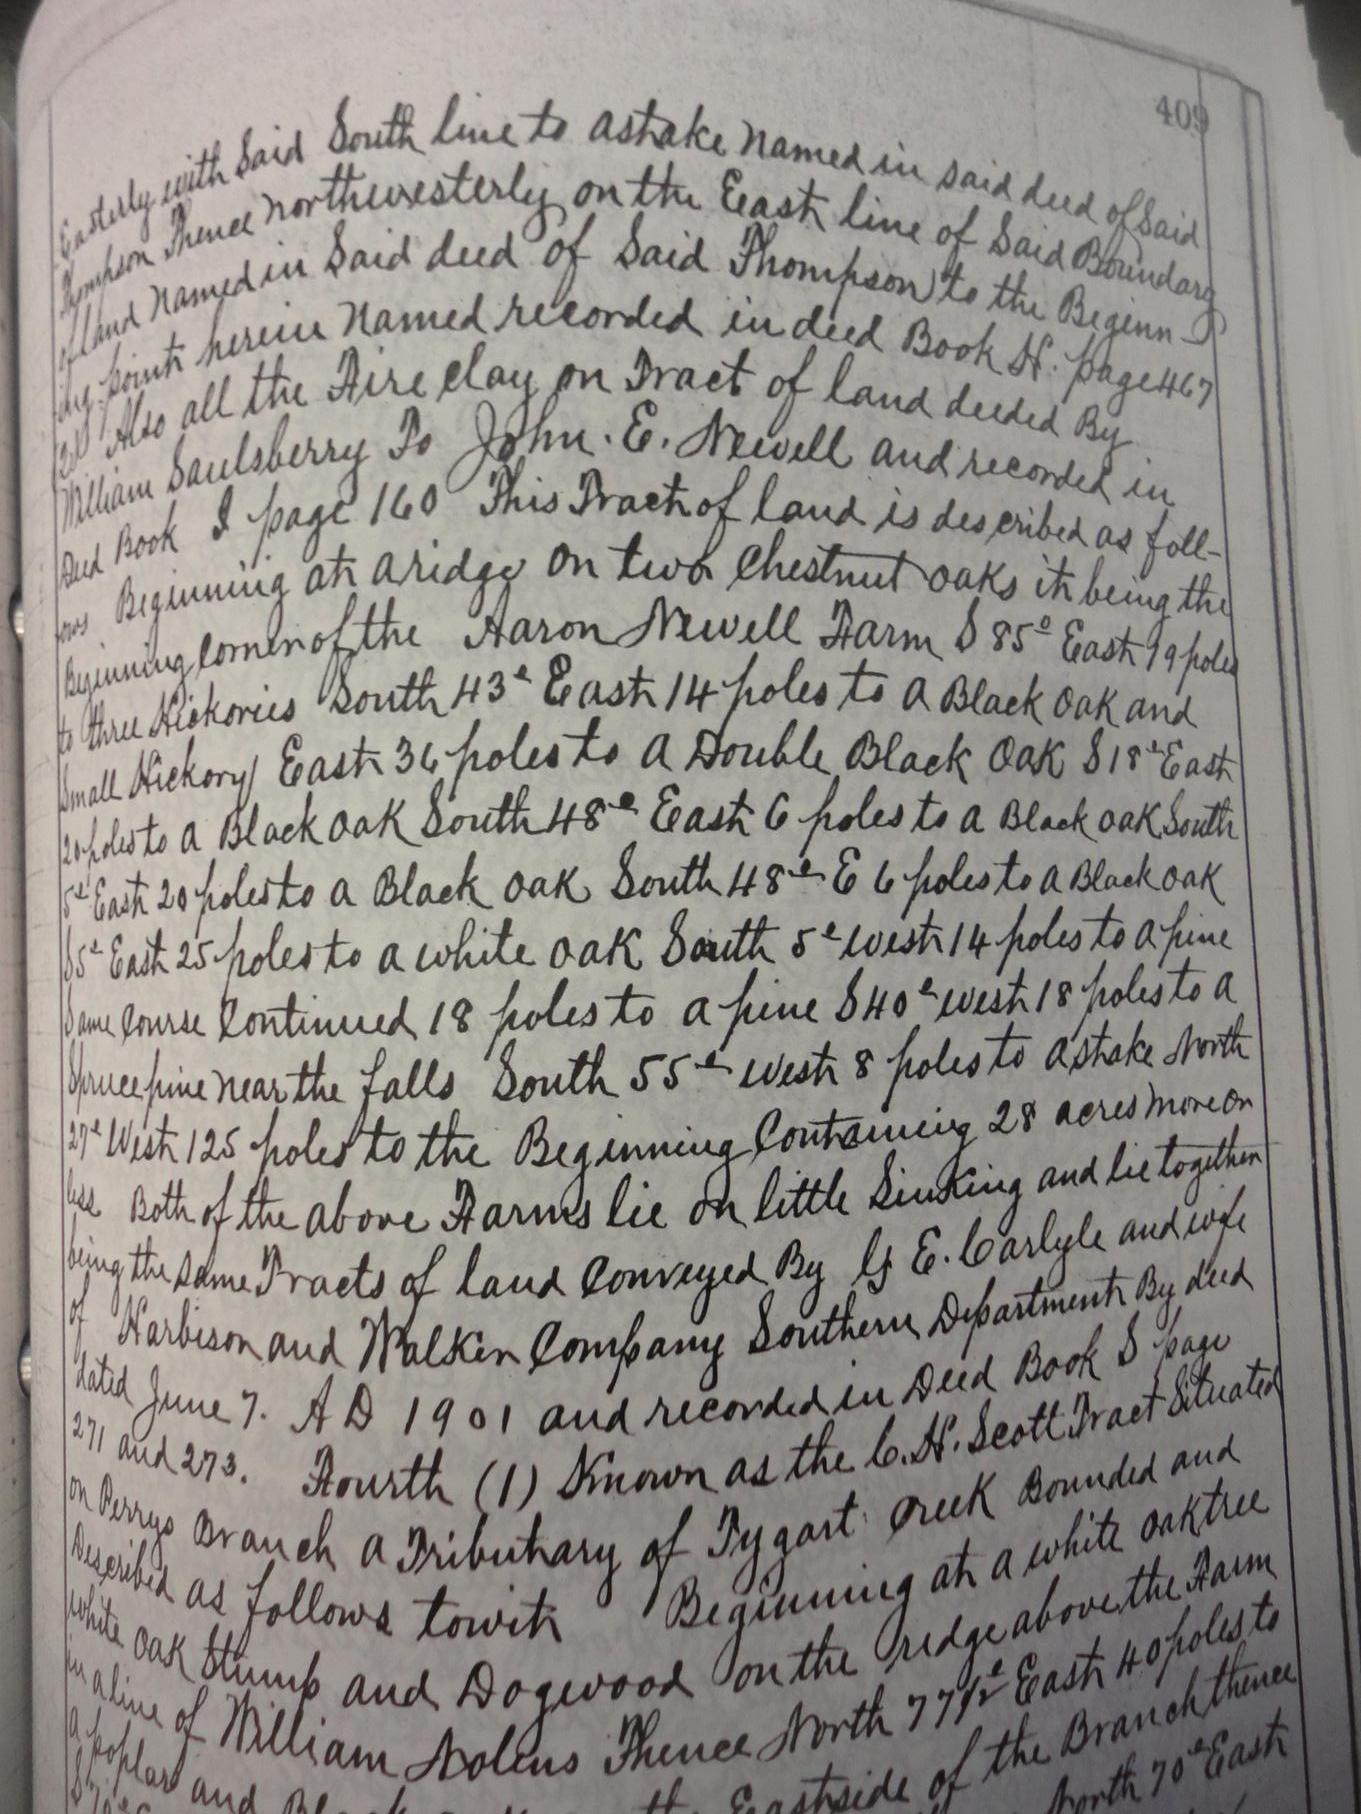 409
Easterly with Said South line to a stake Named in said deed of Said
Thompson Thence northwesterly on the East line of Said Boundary
of land Named in Said deed of Said Thompson to the Beginn-
ing point herein Named recorded in deed Book H. page 467
Also all the Fire clay on Tract of land deeded By
William Saulsberry To John. E. Newell and recorded in
Deed Book I page 160 This Tract of land is described as foll-
ows Beginning at a ridge on two Chestnut oaks it being the
Beginning Corner of the Aaron Newell Farm S 85° East 19 poles
to three Hickories South 43° East 14 poles to a Black Oak and
Small Hickory East 36 poles to a Double Black Oak S 18° East
20 poles to a Black oak South 48° East 6 poles to a Black oak South
5° East 20 poles to a Black oak South 48° E 6 poles to a Black oak
S 5° East 25 poles to a white oak South 5° west 14 poles to a pine
Same Course Continued 18 poles to a pine S 40° west 18 poles to a
Spruce pine near the falls South 55° west 8 poles to a stake North
27° West 125 poles to the Beginning Containing 28 acres more or
less Both of the above Farms lie on little Sinking and lie together
being the same Tracts of land Conveyed By G E. Carlyle and wife
of Harbison and Walker Company Southern Department By deed
dated June 7. A D 1901 and recorded in Deed Book S page
271 and 273. Fourth (1) Known as the C. H. Scott Tract Situated
on Perrys Branch a Tributary of Tygart Creek Bounded and
Described as follows towit Beginning at a white oak tree
white oak Stump and Dogwood on the ridge above the Farm
in a line of William Nolens Thence North 77 1/2° East 40 poles to
a poplar and Eastside of the Branch thence
North 70° East